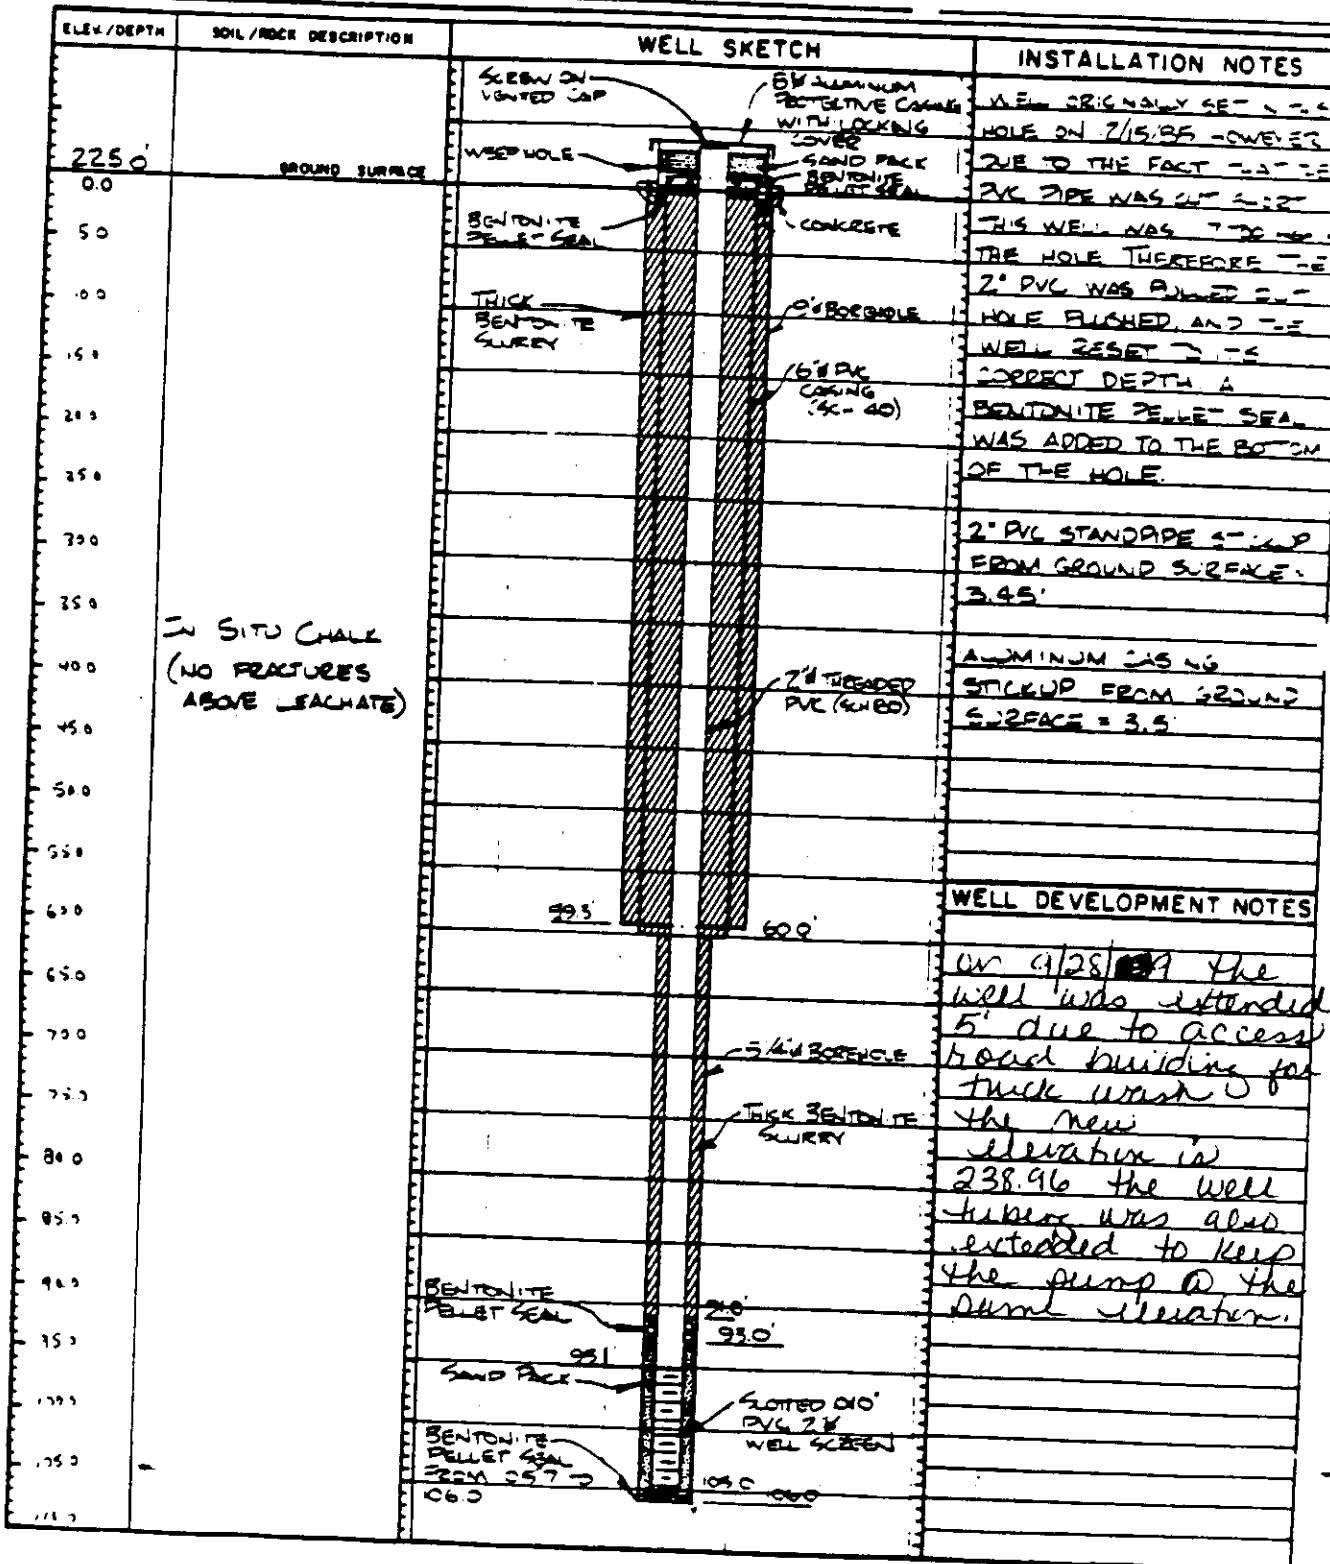 ELEV./DEPTH
SOIL/ROCK DESCRIPTION
WELL SKETCH
INSTALLATION NOTES
225.0'
GROUND SURFACE
0.0
5.0
15.0
20.0
25.0
30.0
35.0
40.0
45.0
50.0
55.0
60.0
65.0
70.0
75.0
80.0
85.0
90.0
95.0
105.0
IN SITU CHALK
(NO FRACTURES
ABOVE LEACHATE)
SCREW ON
VENTED CAP
WEEP HOLE
BENTONITE
PELLET SEAL
THICK
BENTONITE
SLURRY
ALUMINUM
PROTECTIVE CASING
WITH LOCKING
COVER
SAND PACK
BENTONITE
PELLET SEAL
CONCRETE
9"Ø BOREHOLE
6"Ø PVC
CASING
(SC-40)
2"Ø THREADED
PVC (SCH80)
59.5'
60.0'
BOREHOLE
THICK BENTONITE
SLURRY
BENTONITE
PELLET SEAL
93.0'
95.1
SAND PACK
SLOTTED
PVC 2"Ø
WELL SCREEN
BENTONITE
PELLET SEAL
FROM
106.0
105.0 106.0
WELL ORIGINALLY SET
HOLE ON HOWEVER
DUE TO THE FACT
PVC PIPE WAS CUT SHORT
THIS WELL WAS
THE HOLE THEREFORE THE
2" PVC WAS PULLED OUT
HOLE FLUSHED, AND THE
WELL RESET TO ITS
CORRECT DEPTH. A
BENTONITE PELLET SEAL
WAS ADDED TO THE BOTTOM
OF THE HOLE.
2" PVC STANDPIPE STICKUP
FROM GROUND SURFACE =
3.45'
ALUMINUM CASING
STICKUP FROM GROUND
SURFACE = 3.5
WELL DEVELOPMENT NOTES
on 9/28/ 9 the
well was extended
5' due to access
road building for
truck wash
the new
elevation is
238.96 the well
tubing was also
extended to keep
the pump @ the
same elevation.